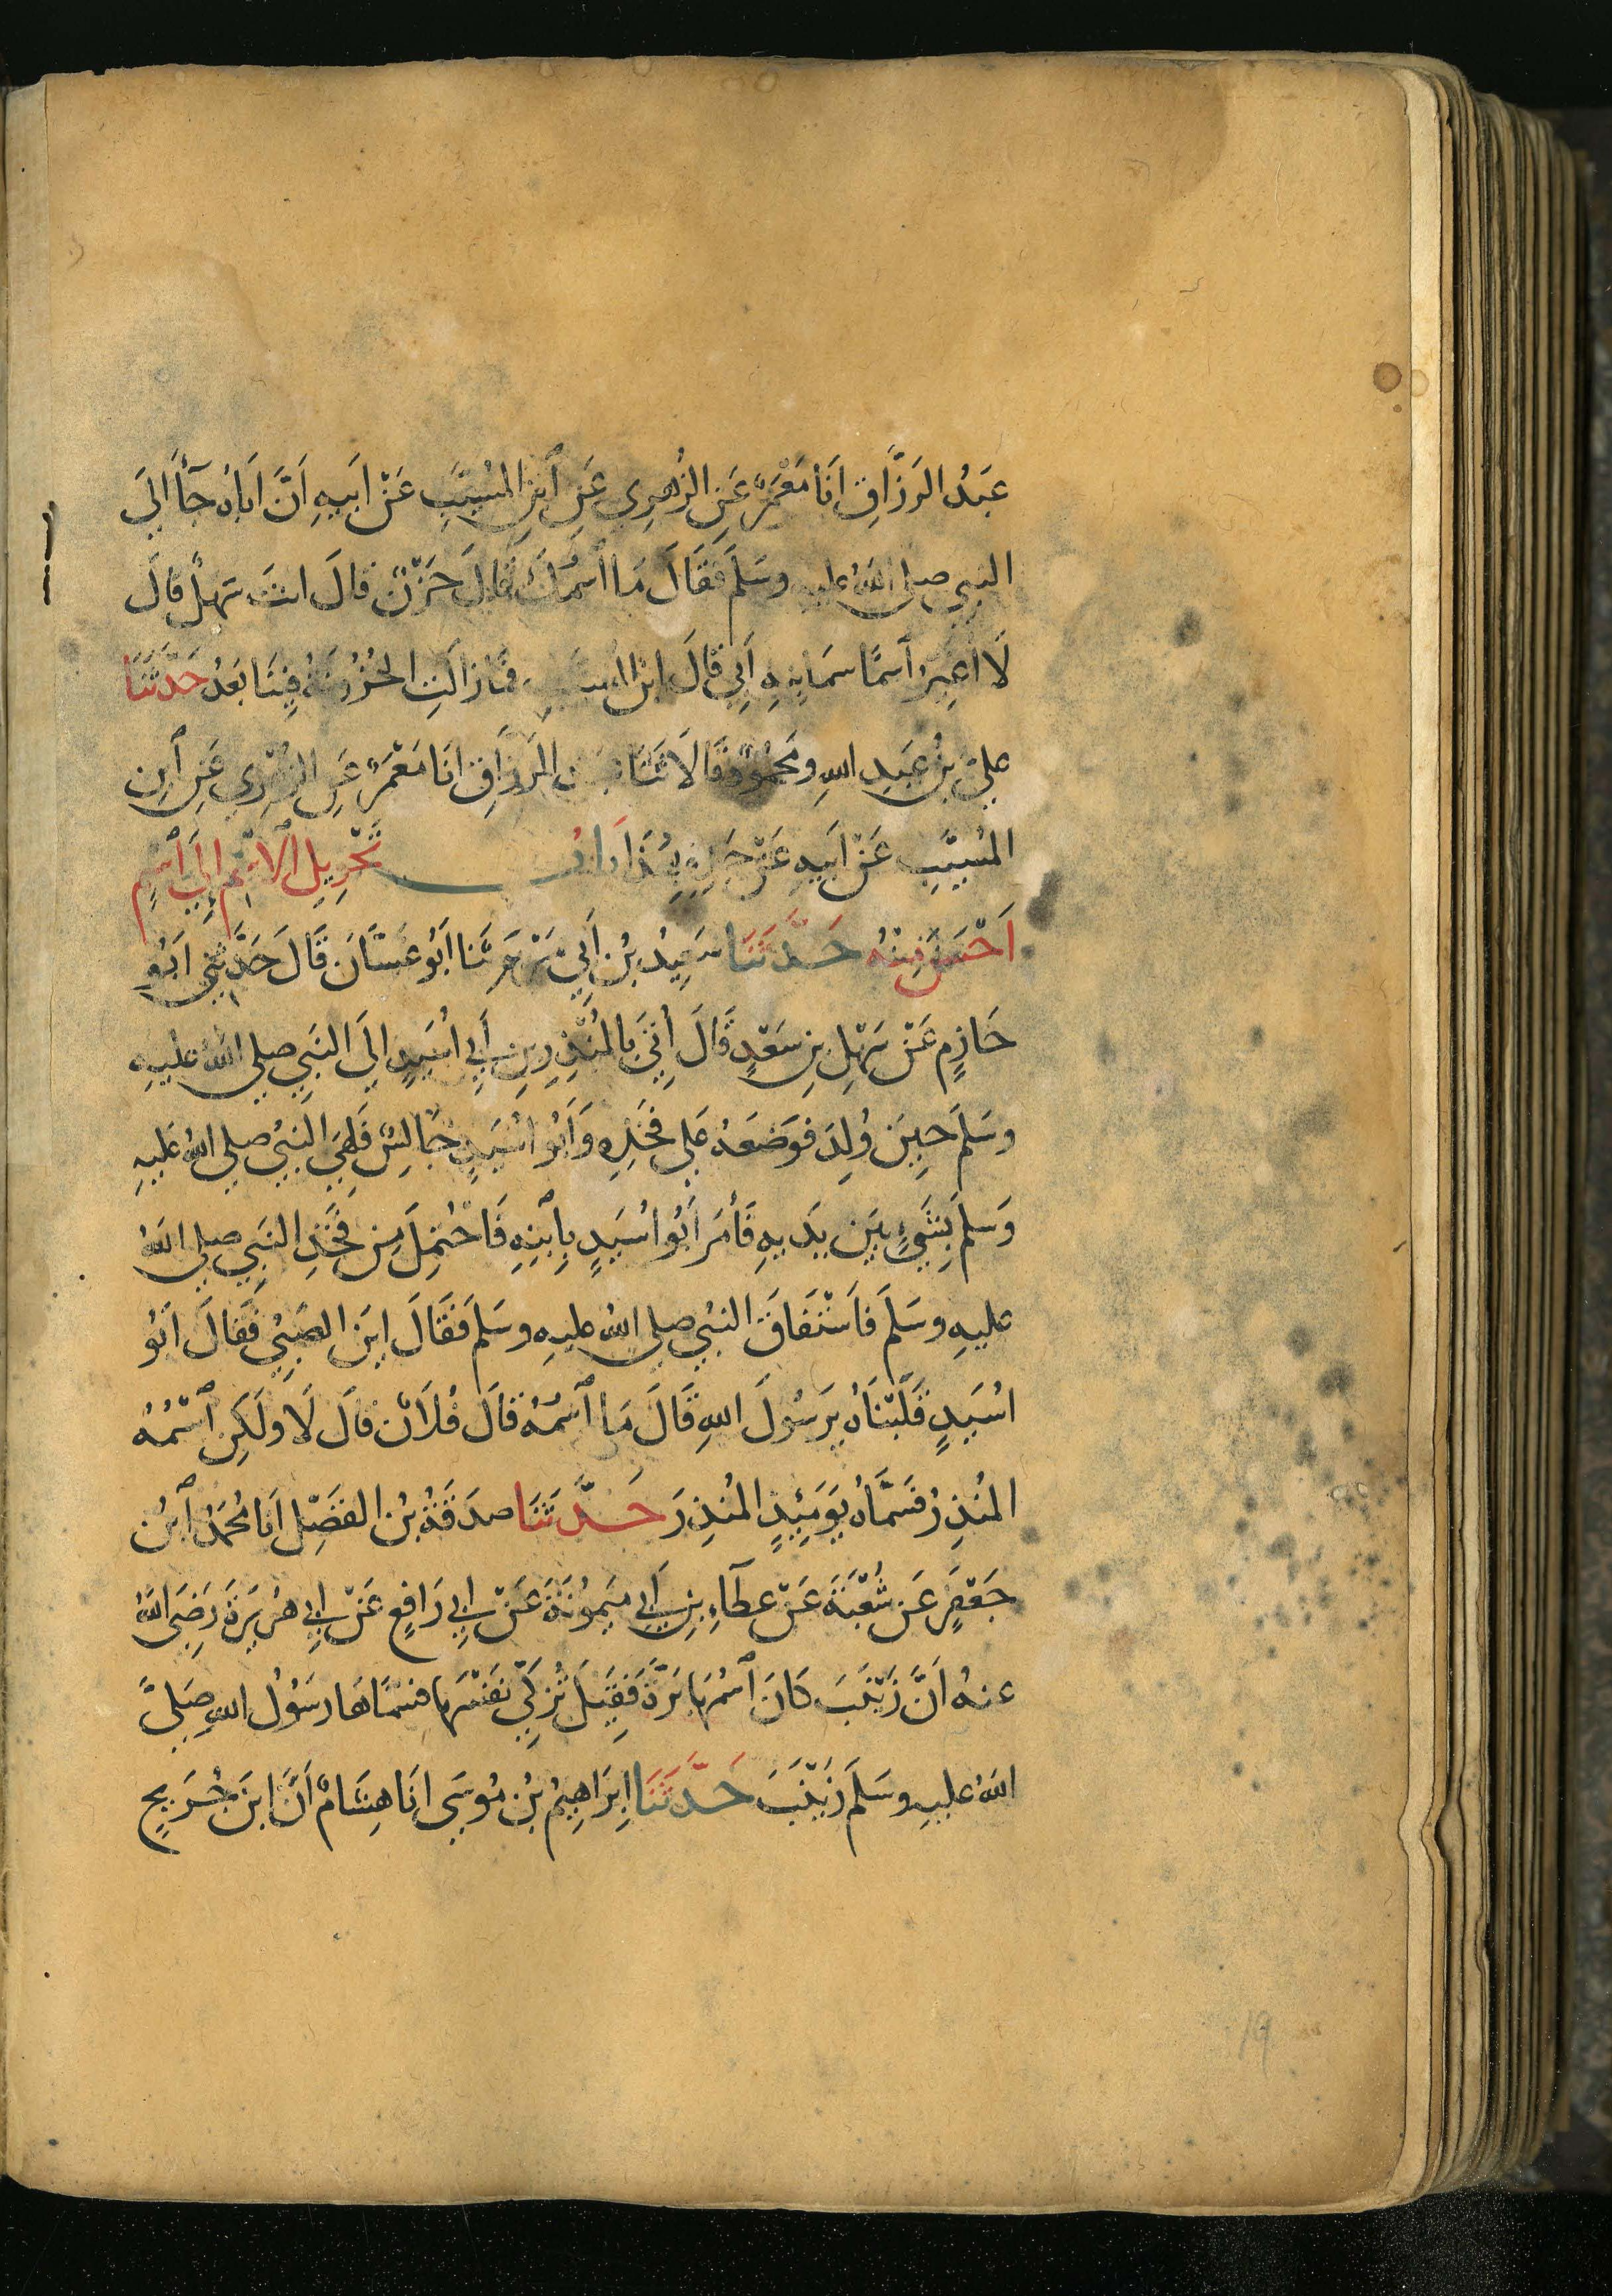 عَبْدُ الرَزَّاقِ اَنَا مَعْمَرٌ عَنِ الزُهْرِي عَنِ اْبنِ المُسَيَّبِ عَنْ اَبِيهِ اَنَّ اَبَاهُ جَآءَ اِلىَ
النبِي صلى اللهُ عليهِ وسَلَمَ فَقَالَ مَا اسْمُكَ قَالَ حَزْنٌ قالَ انتَ سَهْلٌ قالَ
لَا اُغيِرُ اسمًا سَمانِيهِ اَبِي قَالَ ابْنُ المسَيبِ فمَازالَتِ الحُزُونَةُ فِينَا بَعْدُ حَدَّثَنَا
عليُّ بْنُ عَبْدِ اللهِ ومَحْمُودٌ قَالَا ثَنَا عَبْدُ الرَزَاقِ انَا مَعْمَرٌ عَنِ الزهْرِي عَنِ ابْنِ
المُسَيَّبِ عَنْ اَبيهِ عَنْ جَدِهِ بِهَذَا بَابُ تَحْوِيلِ الاسْمِ اِلىَ اسْمٍ
اَحْسَنَ مِنْهُ حَدَّثَنَا سَعِيدُ بْنُ اَبِي مَرْيَمَ ثَنَا اَبُو غَسَّانَ قَالَ حَدَّثَنِي اَبُو
حَازِمٍ عَنْ سَهْلِ بنِ سَعْدٍ قَالَ اُتِيَ بالمُنْذِرِ بنِ اَبِي اُسَيدٍ الِىَ النَبِي صلى اللهُ عليهِ
وسَلمَ حِينَ وُلِدَ فوَضَعَهُ عَلى فخذِهِ وَاَبُو اُسَيدٍ جَالِسٌ فَلَهِيَ النبيُ صلى اللهُ عَليهِ
وَسَلمَ بِشَيْءٍ بَيْنَ يَدَيهِ فَأمَرَ اَبُو اُسَيدٍ بِابْنِهِ فَاحْتُمِلَ مِن فَخِذِ النَبِي صلى اللهُ
عليهِ وسَلَمَ فاَسْتَفَاقَ النبيُ صلى اللهُ عليهِ وسَلمَ فَقَالَ اَينَ الصَبِيُ فَقالَ اَبُو
اُسَيدٍ قَلَبْنَاهُ يَرَسُولَ اللهِ قَالَ مَا اسْمُهُ قالَ فُلَانٌ قَالَ لَا ولَكِنِ اسْمُهُ
المُنذِرُ فسَمَّاهُ يَوَمَئِذٍ المُنذِرَ حَدَّثَنَا صدَقَةُ بْنُ الفضْلِ اَنَا مُحَمدُ ابْنُ
جَعْفَرٍ عَن شُعْبَةَ عَنْ عطَآءِ بنِ اَبِي مَيْمُونَةَ عَنْ اَبِي رَافِعٍ عَنْ اَبِي هُرَيرَةَ رَضِيَ اللهُ
عنهُ اَنَّ زَيْنَبَ كَانَ اسْمُهَا بَرَّةَ فَقِيلَ تُزكِّي نفَسْهَا فسَمَّاهَا رسَوُلُ اللهِ صَلىَّ
اللهُ عليهِ وسَلَمَ زَيْنَبَ حَدَّثَنَا اِبْرَاهِيمُ بْنُ مُوسَى انَا هِشَامٌ اَنَّ ابنَ جُرَيجٍ
19